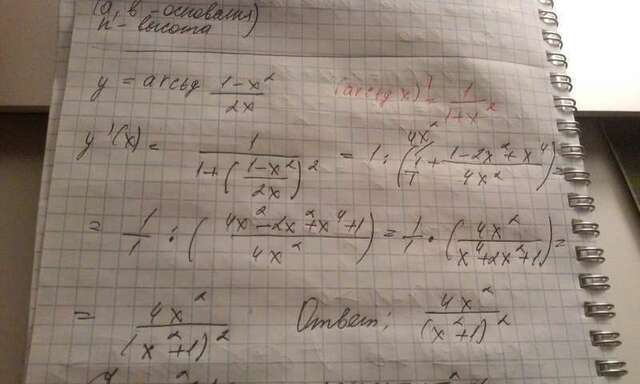 (a, в - основания)
h - высота
y = arctg (1-x²)/(2x)    (arctg x)' = 1/(1+x²)
y'(x) = 1/(1+((1-x²)/(2x))²) = 1 : (1/1 + (1-2x²+x⁴)/(4x²)) =
= 1/1 : ((4x²-2x²+x⁴+1)/(4x²)) = 1/1 · (4x²/(x⁴+2x²+1)) =
= 4x²/(x²+1)²    Ответ: 4x²/(x²+1)²